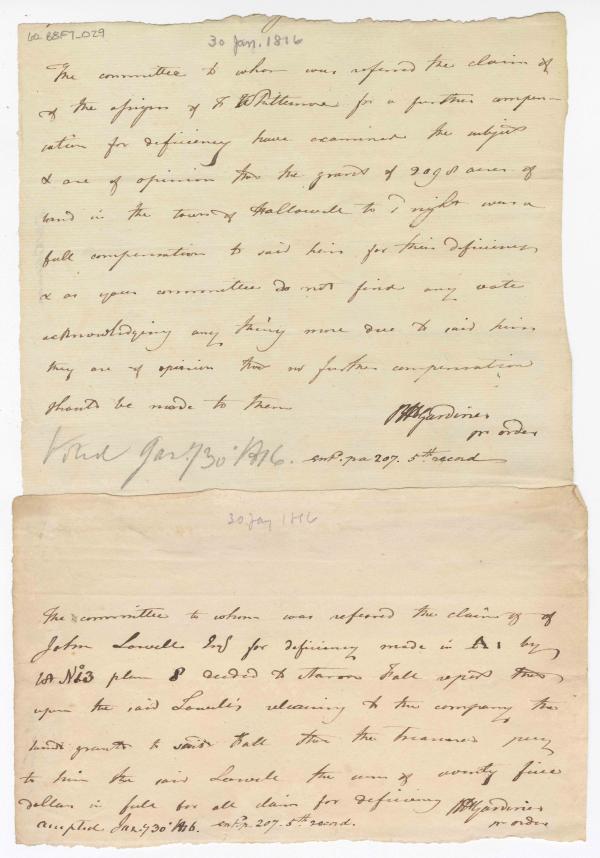 60 B8F7_029
30 Jan. 1816
The committee to whom was referred the claim of
of the assigns of Whittemore for a further compen-
sation for deficiency have examined the subject
& are of opinion that the grants of 2098 acres of
land in the town of Hallowell to was a
full compensation to said heirs for their deficiency
& as your committee do not find any vote
acknowledging any thing more due to said heirs
they are of opinion that no further compensation
should be made to them
RHGardiner
pr order
Voted Jany 30th 1816. entd. pa 207. 5th record
30 Jany 1816
The committee to whom was referred the claim of of
John Lowell Esq for deficiency made in by
lot No 3 plan 8 deeded to Aaron Fall report that
upon the said Lowell's releasing to the company the
land granted to said Fall that the Treasurer pay
to him the said Lowell the sum of twenty five
dollars in full for all claim for deficiency
RHGardiner
pr order
accepted Jany 30th 1816. entd. p. 207. 5th record.